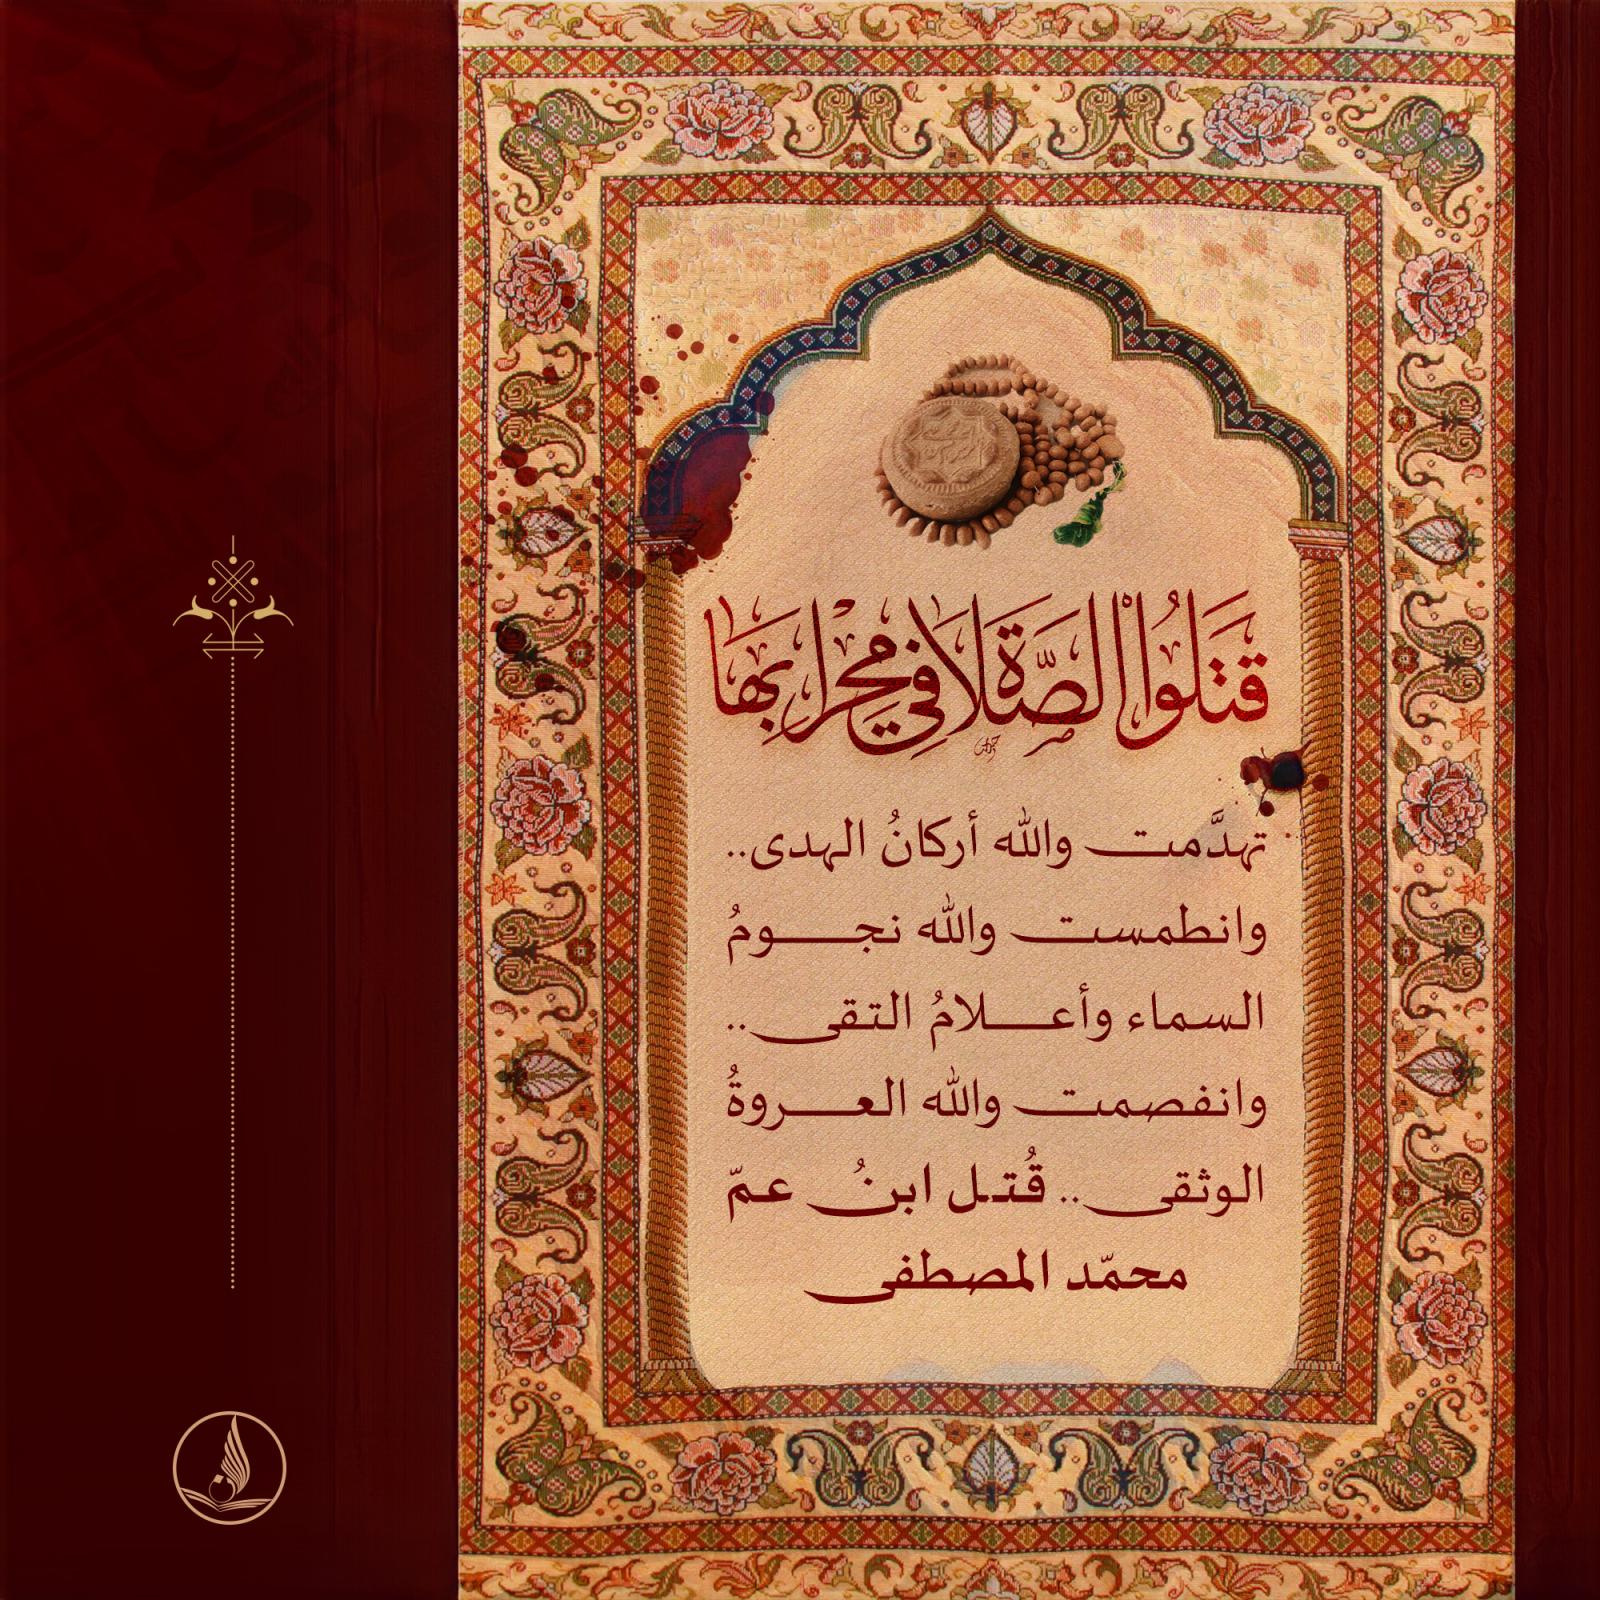 قَتَلُوا الصَّلَاةَ فِي مِحْرَابِهَا
تهدَّمت والله أركانُ الهدى..
وانطمست والله نجومُ
السماء وأعلامُ التقى..
وانفصمت والله العروةُ
الوثقى.. قُتل ابنُ عمّ
محمّد المصطفى